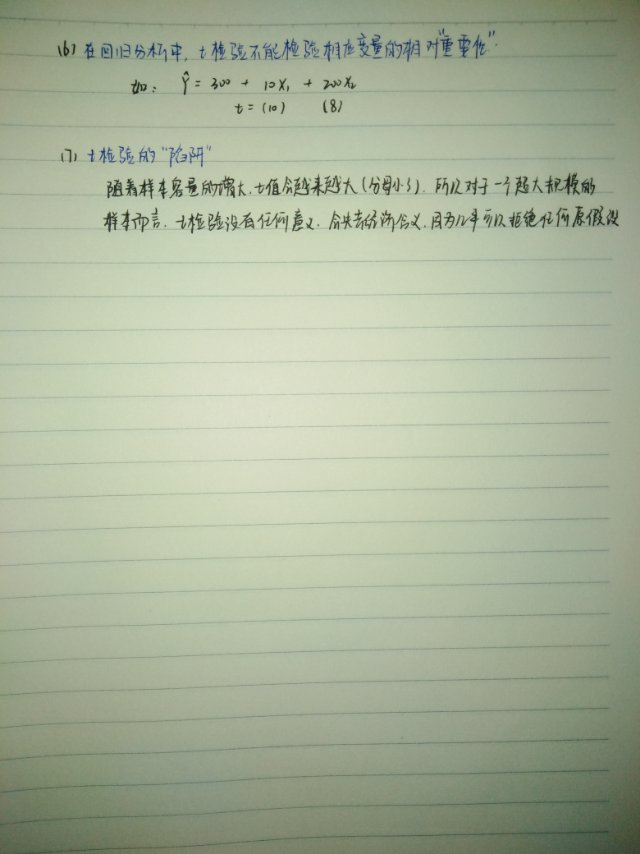 (6) 在回归分析中, t检验不能检验相应变量的相对"重要性".
如: Ŷ = 300 + 10X₁ + 200X₂
t = (10) (8)
(7) t检验的"陷阱"
随着样本容量的增大, t值会越来越大(分母小了). 所以对于一个超大规模的
样本而言, t检验没有任何意义, 会失去经济含义, 因为几乎可以拒绝任何原假设